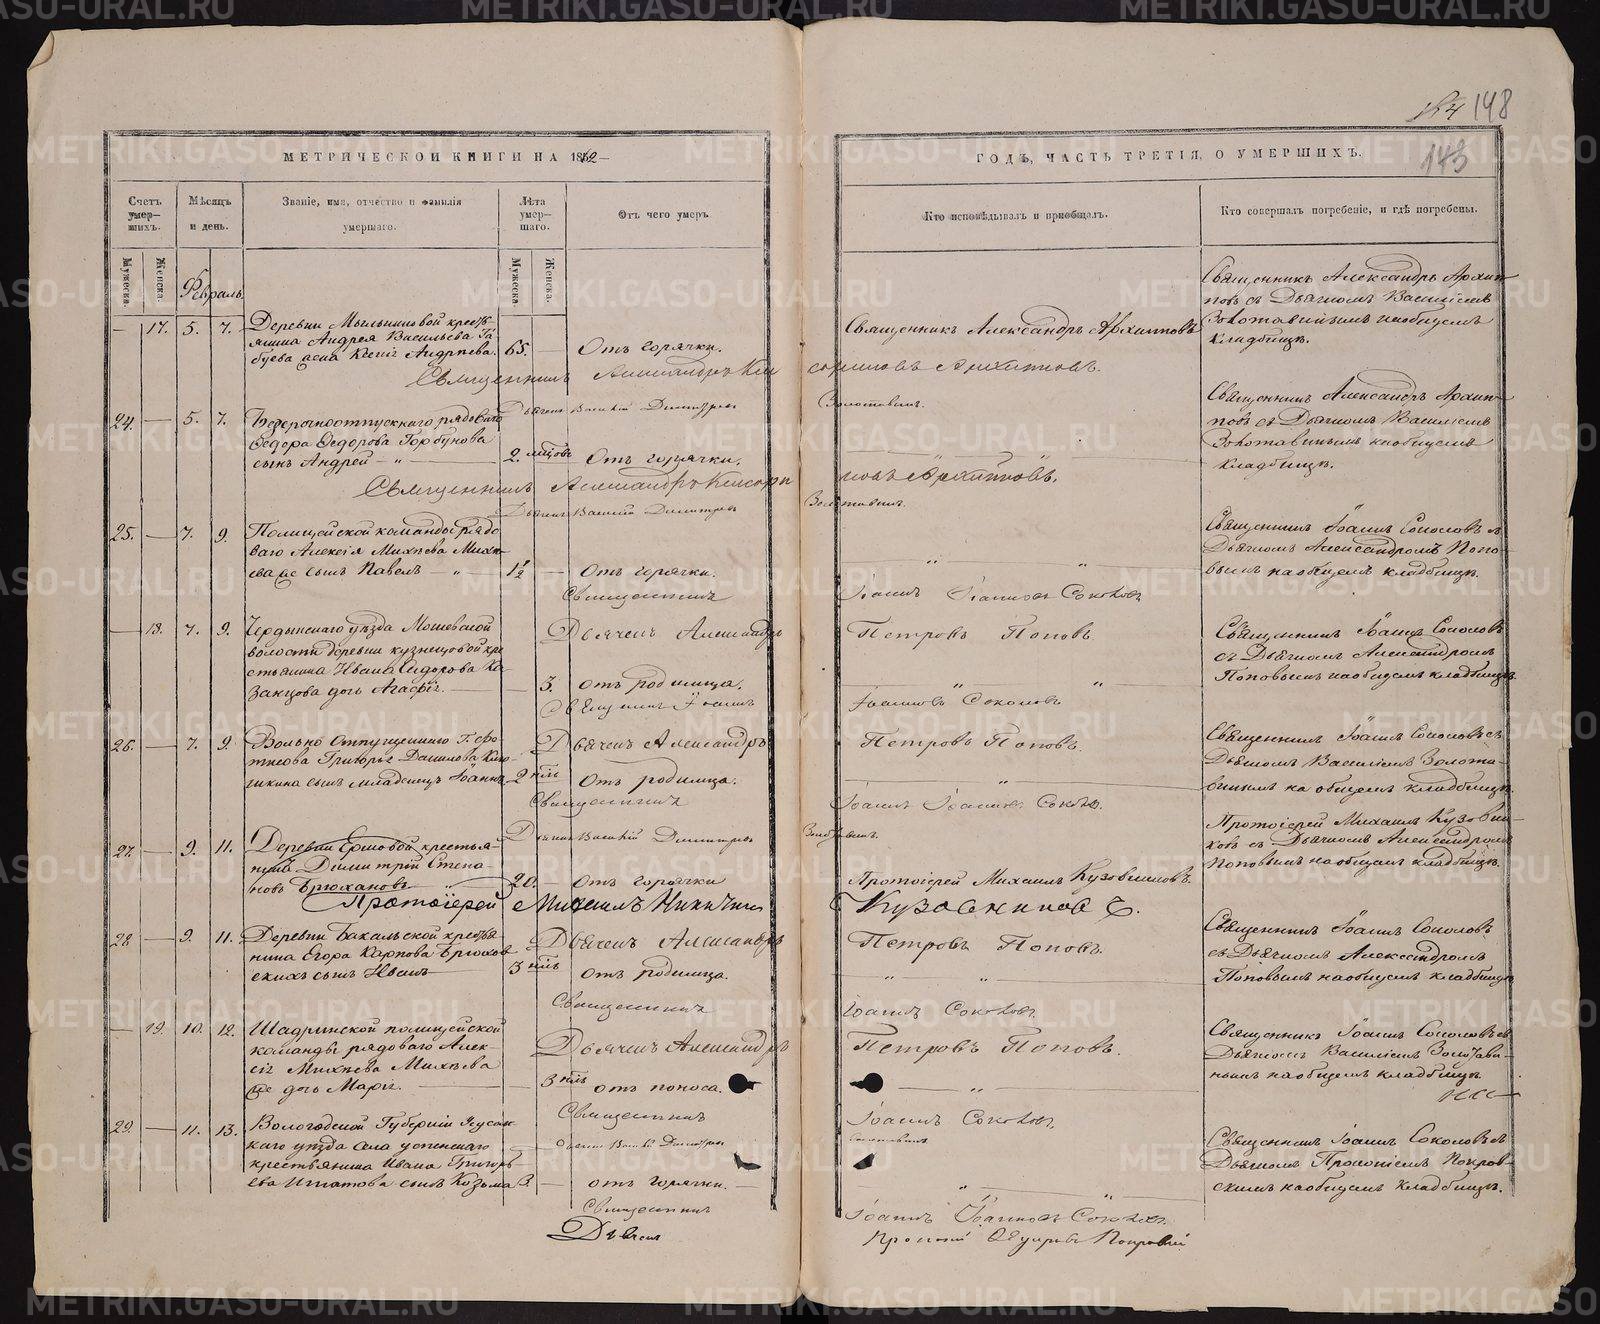 154 148
143
МЕТРИЧЕСКОЙ КНИГИ НА 1862
ГОДЪ, ЧАСТЬ ТРЕТІЯ, О УМЕРШИХЪ.
Счетъ умер-шихъ.
Мѣсяцъ и день.
Званіе, имя, отчество и фамилія умершаго.
Лѣта умер-шаго.
Отъ чего умеръ.
Кто исповѣдывалъ и пріобщалъ.
Кто совершалъ погребеніе, и гдѣ погребены.
Мужеска. Женска.
Февраль.
Мужеска Женска.
— 17. 5. 7. Деревни Мыльниковой кресть-
янина Андрея Васильева
жена Андреева. 65. — Отъ горячки.
Священникъ Александръ Архиповъ
Священникъ Александръ Архип-
повъ съ Дьячкомъ Василіемъ
Золотавинымъ на общемъ
кладбищѣ.
Священникъ Александръ
Архиповъ.
Дьячекъ Василій Димитріевъ
Золотавинъ.
24. — 5. 7. Безсрочноотпускнаго рядоваго
Ѳедора Ѳедорова Горбунова
сынъ Андрей — 2. мѣсцовъ Отъ горячки.
Священникъ Александръ Архип-
повъ съ Дьячкомъ Василіемъ
Золотавинымъ на общемъ
кладбищѣ.
Священникъ Александръ
Архиповъ.
Дьячекъ Василій Димитріевъ
Золотавинъ.
25. — 7. 9. Полицейской команды рядо-
ваго Алексія Михѣева Михѣ-
ева же сынъ Павелъ — 1½ — Отъ горячки.
Священникъ Іоаннъ Соколовъ съ
Дьячкомъ Александромъ Попо-
вымъ на общемъ кладбищѣ.
Священникъ
Іоаннъ Іоанновъ Соколовъ
Дьячекъ Александръ
Петровъ Поповъ.
— 18. 7. 9. Чердынскаго уѣзда Мошевской
волости деревни кузнецовой кре-
стьянина Ивана Сидорова Ка-
занцова дочь Агафія. — 3. отъ родимца.
Священникъ Іоаннъ Соколовъ
съ Дьячкомъ Александромъ
Поповымъ на общемъ кладбищѣ
Священникъ Іоаннъ
Іоанновъ Соколовъ
Дьячекъ Александръ
Петровъ Поповъ.
26. — 7. 9. Вольно отпущеннаго
Григорья Данилова
сынъ младенецъ Іоаннъ — 2 нѣд Отъ родимца.
Священникъ Іоаннъ Соколовъ съ
Дьячкомъ Василіемъ Золота-
винымъ на общемъ кладбищѣ.
Священникъ
Іоаннъ Іоанновъ Соколовъ.
Дьячекъ Василій Димитріевъ
Золотавинъ.
27. — 9. 11. Деревни Ершовой крестья-
нинъ Димитрій Степа-
новъ Брюхановъ 20. Отъ горячки
Протоіерей Михаилъ Кузовниковъ.
Протоіерей Михаилъ Кузовни-
ковъ съ Дьячкомъ Александромъ
Поповымъ на общемъ кладбищѣ.
Протоіерей Михаилъ Никитинъ
Кузовниковъ.
Дьячекъ Александръ
Петровъ Поповъ.
28 — 9. 11. Деревни Бакальской кресть-
янина Егора Карпова Брюхов-
скихъ сынъ Иванъ 3 нѣд отъ родимца.
Священникъ Іоаннъ Соколовъ
съ Дьячкомъ Александромъ
Поповымъ на общемъ кладбищѣ
Священникъ
Іоаннъ Соколовъ
Дьячекъ Александръ
Петровъ Поповъ.
— 19. 10. 12. Шадринской полицейской
команды рядоваго Алек-
сія Михѣева Михѣева
же дочь Марія. 3 нѣд отъ поноса.
Священникъ Іоаннъ Соколовъ съ
Дьячкомъ Василіемъ Золотави-
нымъ на общемъ кладбищѣ
Священникъ
Іоаннъ Соколовъ
Дьячекъ Василій Димитріевъ
Золотавинъ
29. — 11. 13. Вологодской Губерніи
уѣзда села успенскаго
крестьянина Ивана Григорь-
ева Игнатова сынъ Козьма 3. — отъ горячки.
Священникъ Іоаннъ Соколовъ съ
Дьячкомъ Прокопіемъ Покров-
скимъ на общемъ кладбищѣ.
Священникъ
Іоаннъ Іоанновъ Соколовъ.
Дьячекъ
METRIKI.GASO-URAL.RU